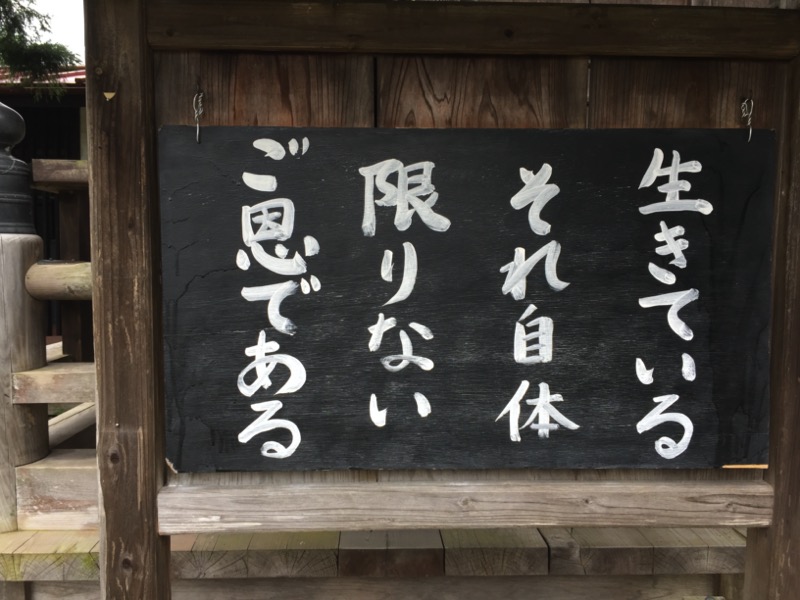 生きている
それ自体
限りない
ご恩である